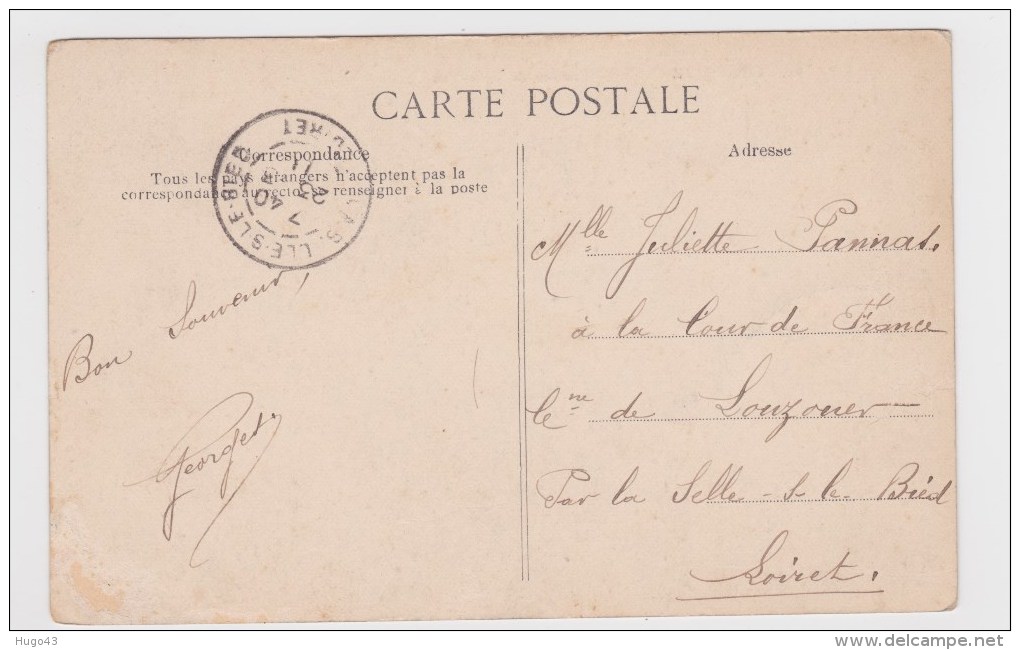 CARTE POSTALE
Correspondance
Tous les pays étrangers n'acceptent pas la
correspondance au recto se renseigner à la poste
Adresse
LA SELLE-S-LE-BIED
LOIRET
7 40
Bon Souvenir,
Georget
Mlle Juliette Pannat.
à la Cour de France
Cne de Louzouer
Par la Selle-s-le-Bied
Loiret.
Hugo43
www.delcampe.net